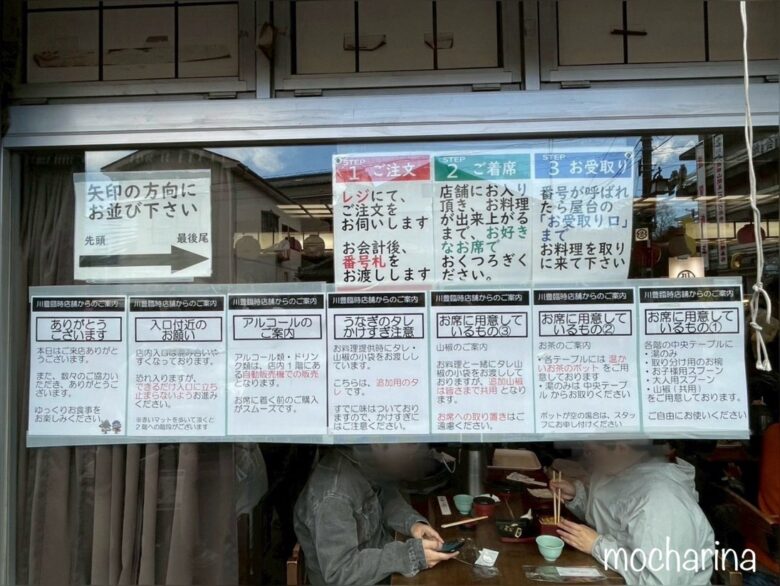 矢印の方向に
お並び下さい
先頭
最後尾
STEP
1 ご注文
レジにて、
ご注文を
お伺いします
お会計後、
番号札を
お渡しします
STEP
2 ご着席
店舗にお入り
頂き、お料理
が出来上がる
まで、お好き
なお席で
おくつろぎく
ださい。
STEP
3 お受取り
番号が呼ばれ
たら屋台の
「お受取り口」
まで
お料理を取り
に来て下さい
川豊臨時店舗からのご案内
ありがとう
ございます
本日はご来店ありがと
うございます。
また、数々のご協力い
ただき、ありがとうご
ざいます。
ゆっくりお食事を
お楽しみください。
川豊臨時店舗からのご案内
入口付近の
お願い
店内入口は混み合いや
すくなっております。
恐れ入りますが、
できるだけ入口に立ち
止まらないようお進み
ください。
※赤いマットを歩いて頂くと
2階への階段がございます
川豊臨時店舗からのご案内
アルコールの
ご案内
アルコール類・ドリン
ク類は、店内1階にあ
る自動販売機での販売
となります。
お席に着く前のご購入
がスムーズです。
川豊臨時店舗からのご案内
うなぎのタレ
かけすぎ注意
お料理提供時にタレ・
山椒の小袋をお渡しし
ています。
こちらは、追加用のタ
レです。
すでに味はついており
ますので、かけすぎに
はご注意ください。
川豊臨時店舗からのご案内
お席に用意して
いるもの③
山椒のご案内
お料理と一緒にタレ山
椒の小袋をお渡しして
おりますが、追加山椒
は皆さまで共用となり
ます。
お席への取り置きはご
遠慮ください。
川豊臨時店舗からのご案内
お席に用意して
いるもの②
お茶のご案内
・各テーブルには温か
いお茶のポットをご用
意しております
・湯のみは中央テーブ
ルからお取りください
ポットが空の場合は、スタッ
フにお申し付けください
川豊臨時店舗からのご案内
お席に用意して
いるもの①
各階の中央テーブルに
・湯のみ
・取り分け用のお椀
・お子様用スプーン
・大人用スプーン
・山椒(共用)
をご用意しております。
ご自由にお使いください
mocharina